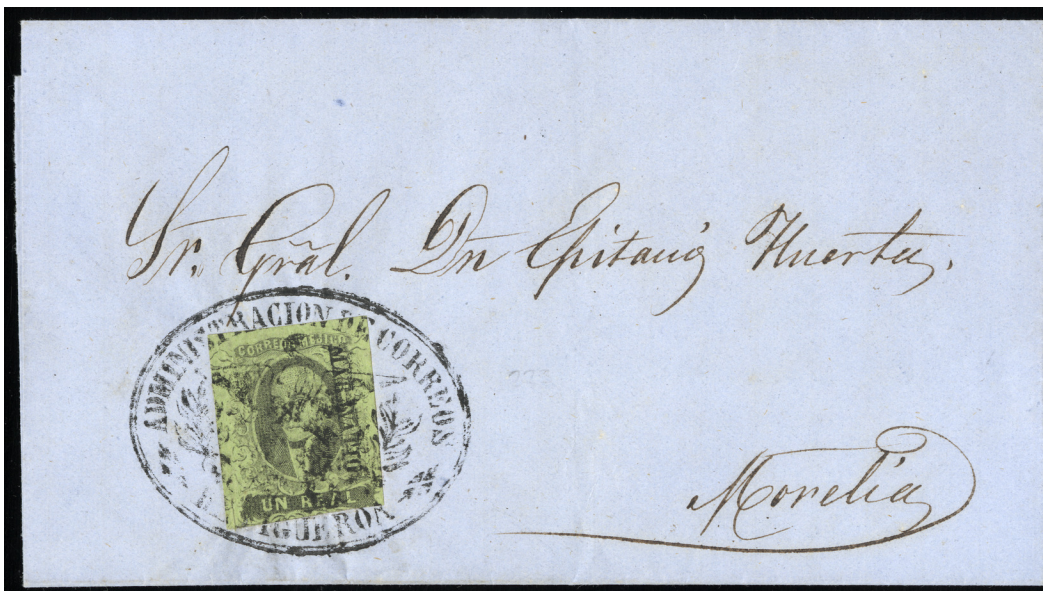 Sr. Grãl. Dn Epitacio Huerta.
ADMINISTRACION DE CORREOS
CORREOS MEJICO
MARAVATIO
UN REAL
HIGUERON
Morelia